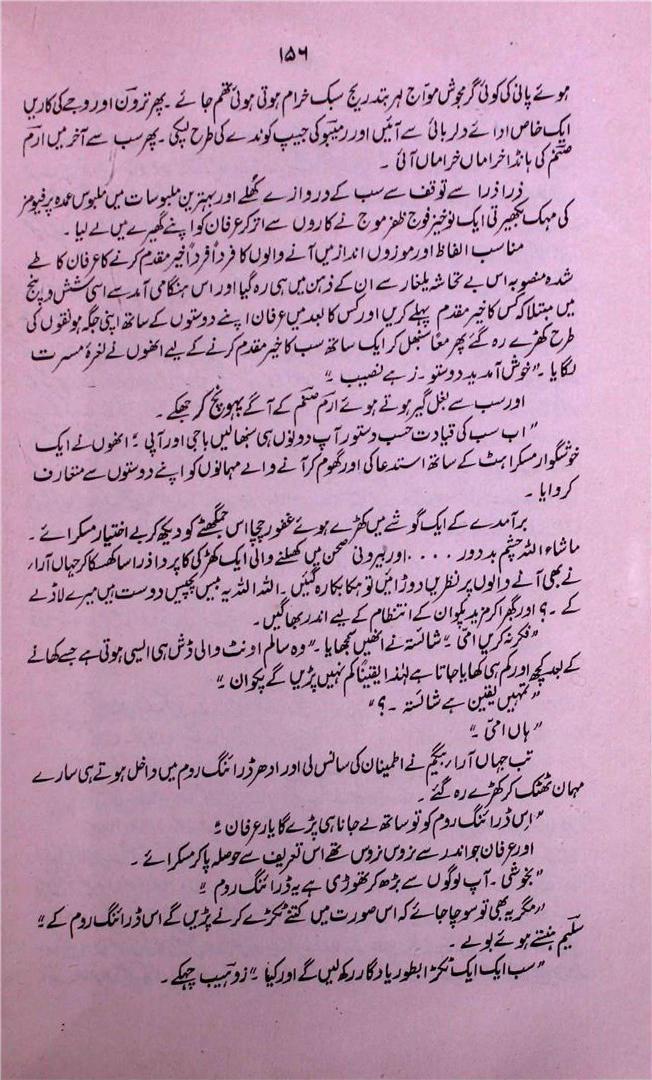 ۱۵۶
ہوئے پانی کی کوئی گرمجوش موّاج لہر بتدریج سبک خرام ہوتی ہوئی تھم جائے ۔ پھر ترون اور وجے کی کاریں
ایک خاص ادائے دلربائی سے آئیں اور رمیتو کی جیپ کوندے کی طرح لپکی ۔ پھر سب سے آخر میں ارم
صنم کی ہانڈا خراماں خراماں آئی ۔
ذرا ذرا سے توقف سے سب کے دروازے کھلے اور بہترین ملبوسات میں ملبوس عمدہ پرفیومز
کی مہک بکھیرتی ایک نوخیز فوج ظفر موج نے کاروں سے اتر کر عرفان کو اپنے گھیرے میں لے لیا ۔
مناسب الفاظ اور موزوں انداز میں آنے والوں کا فرداً فرداً خیر مقدم کرنے کا عرفان کا طے
شدہ منصوبہ اس بے تحاشہ یلغار سے ان کے ذہن میں ہی رہ گیا اور اس ہنگامی آمد سے اسی شش و پنج
میں مبتلا کہ کس کا خیر مقدم پہلے کریں اور کس کا بعد میں عرفان اپنے دوستوں کے ساتھ اپنی جگہ مونقوں کی
طرح کھڑے رہ گئے پھر معاً سنبھل کر ایک ساتھ سب کا خیر مقدم کرنے کے لیے انھوں نے نعرۂ مسرت
لگایا ۔ "خوش آمدید دوستو ۔ زہے نصیب ۔"
اور سب سے بغل گیر ہوتے ہوئے ارم صنم کے آگے پہونچ کر جھکے ۔
"اب سب کی قیادت حسب دستور آپ دونوں ہی سنبھالیں باجی اور آپی ۔" انھوں نے ایک
خوشگوار مسکراہٹ کے ساتھ استدعا کی اور گھوم کر آنے والے مہمانوں کو اپنے دوستوں سے متعارف
کروایا ۔
برآمدے کے ایک گوشے میں کھڑے ہوئے غفور چچا اس جمگھٹے کو دیکھ کر بے اختیار مسکرائے ۔
ماشاء اللہ چشم بد دور .... اور بیرونی صحن میں کھلنے والی ایک کھڑکی کا پردا ذرا سا کھسکا کر جہاں آراء
نے بھی آنے والوں پر نظریں دوڑائیں تو ہکا بکا رہ گئیں ۔ اللہ اللہ یہ بیس پچیس دوست ہیں میرے لاڈلے
کے ۔؟ اور گھبرا کر مزید پکوان کے انتظام کے لیے اندر بھاگیں ۔
"فکر نہ کریں امّی ۔" شائستہ نے انھیں سمجھایا ۔ "وہ سالم اونٹ والی ڈش ہی ایسی ہوتی ہے جسے کھانے
کے بعد کچھ اور کم ہی کھایا جاتا ہے لہٰذا یقیناً کم نہیں پڑیں گے پکوان ۔"
"تمہیں یقین ہے شائستہ ۔؟"
"ہاں امّی ۔"
تب جہاں آراء بیگم نے اطمینان کی سانس لی اور ادھر ڈرائنگ روم میں داخل ہوتے ہی سارے
مہمان ٹھٹک کر کھڑے رہ گئے ۔
"اس ڈرائنگ روم کو تو ساتھ لے جانا ہی پڑے گا یار عرفان ۔"
اور عرفان جو اندر سے نروس نروس تھے اس تعریف سے حوصلہ پا کر مسکرائے ۔
"بخوشی ۔ آپ لوگوں سے بڑھ کر تھوڑی ہے یہ ڈرائنگ روم ۔"
"مگر یہ بھی تو سوچا جائے کہ اس صورت میں کتنے ٹکڑے کرنے پڑیں گے اس ڈرائنگ روم کے ۔"
سلیم ہنستے ہوئے بولے ۔
"سب ایک ایک ٹکڑا بطور یادگار رکھ لیں گے اور کیا ۔" زوہیب چہکے ۔